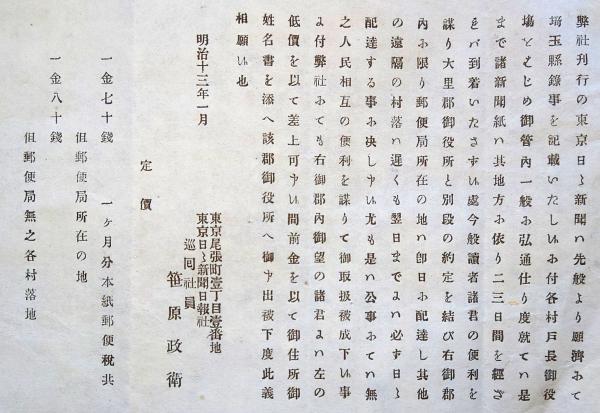 弊社刊行の東京日〻新聞ハ先般より願濟みて
埼玉縣錄事を記載いたし𛂞お付各村戸長御役
塲をもじめ御管内一般お弘通仕り度就てハ是
まで諸新聞紙ハ其地方お依り二三日間を經ざ
れバ到着いたさず𛂞處今般讀者諸君の便利を
謀り大里郡御役所と別段の約定を結び右御郡
内お限り郵便局所在の地ハ即日お配達し其他
の遠隔の村落ハ遲くも翌日までよハ必ず日〻
配達する事お决し申𛂞尤も是ハ公事おてハ無
之人民相互の便利を謀りて御取扱被成下𛂞事
よ付弊社おても右御郡内御望の諸君よハ左の
低價を以て差上可申𛂞間前金を以て御住所御
姓名書を添へ該郡御役所へ御申出被下度此義
相願𛂞也
明治十三年一月
東京尾張町壹丁目壹番地
東京日〻新聞日報社
巡回社員
笹原政衛
定價
一金七十錢 一ヶ月分本紙郵便税共
但郵便局所在の地
一金八十錢
但郵便局無之各村落地